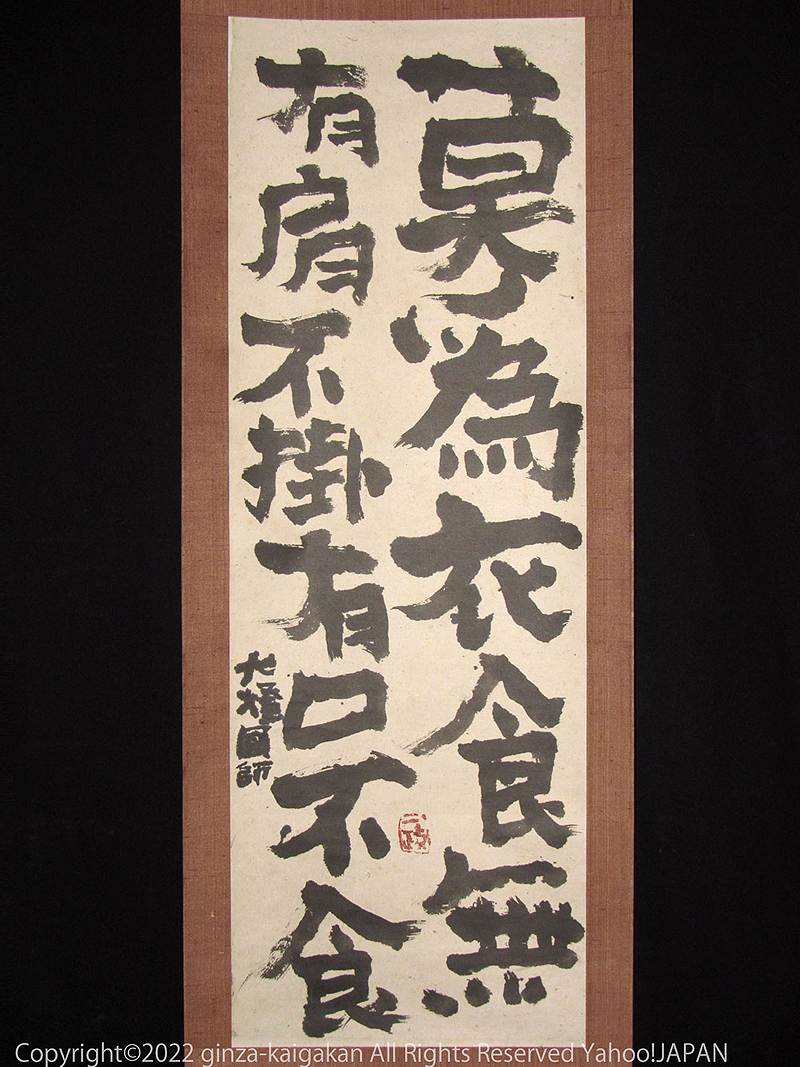 莫為衣食無
有肩不掛有口不食
大燈國師
一政
Copyright©2022 ginza-kaigakan All Rights Reserved Yahoo!JAPAN